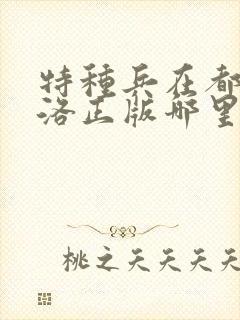 特種兵在都
洛正版哪里
桃之夭夭夭夭